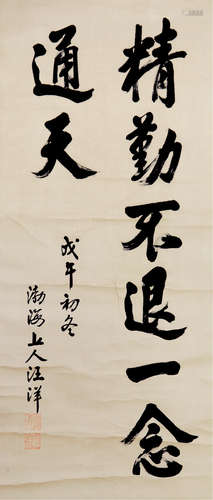 精勤不退一念
通天
戊午初冬
渤海上人汪洋